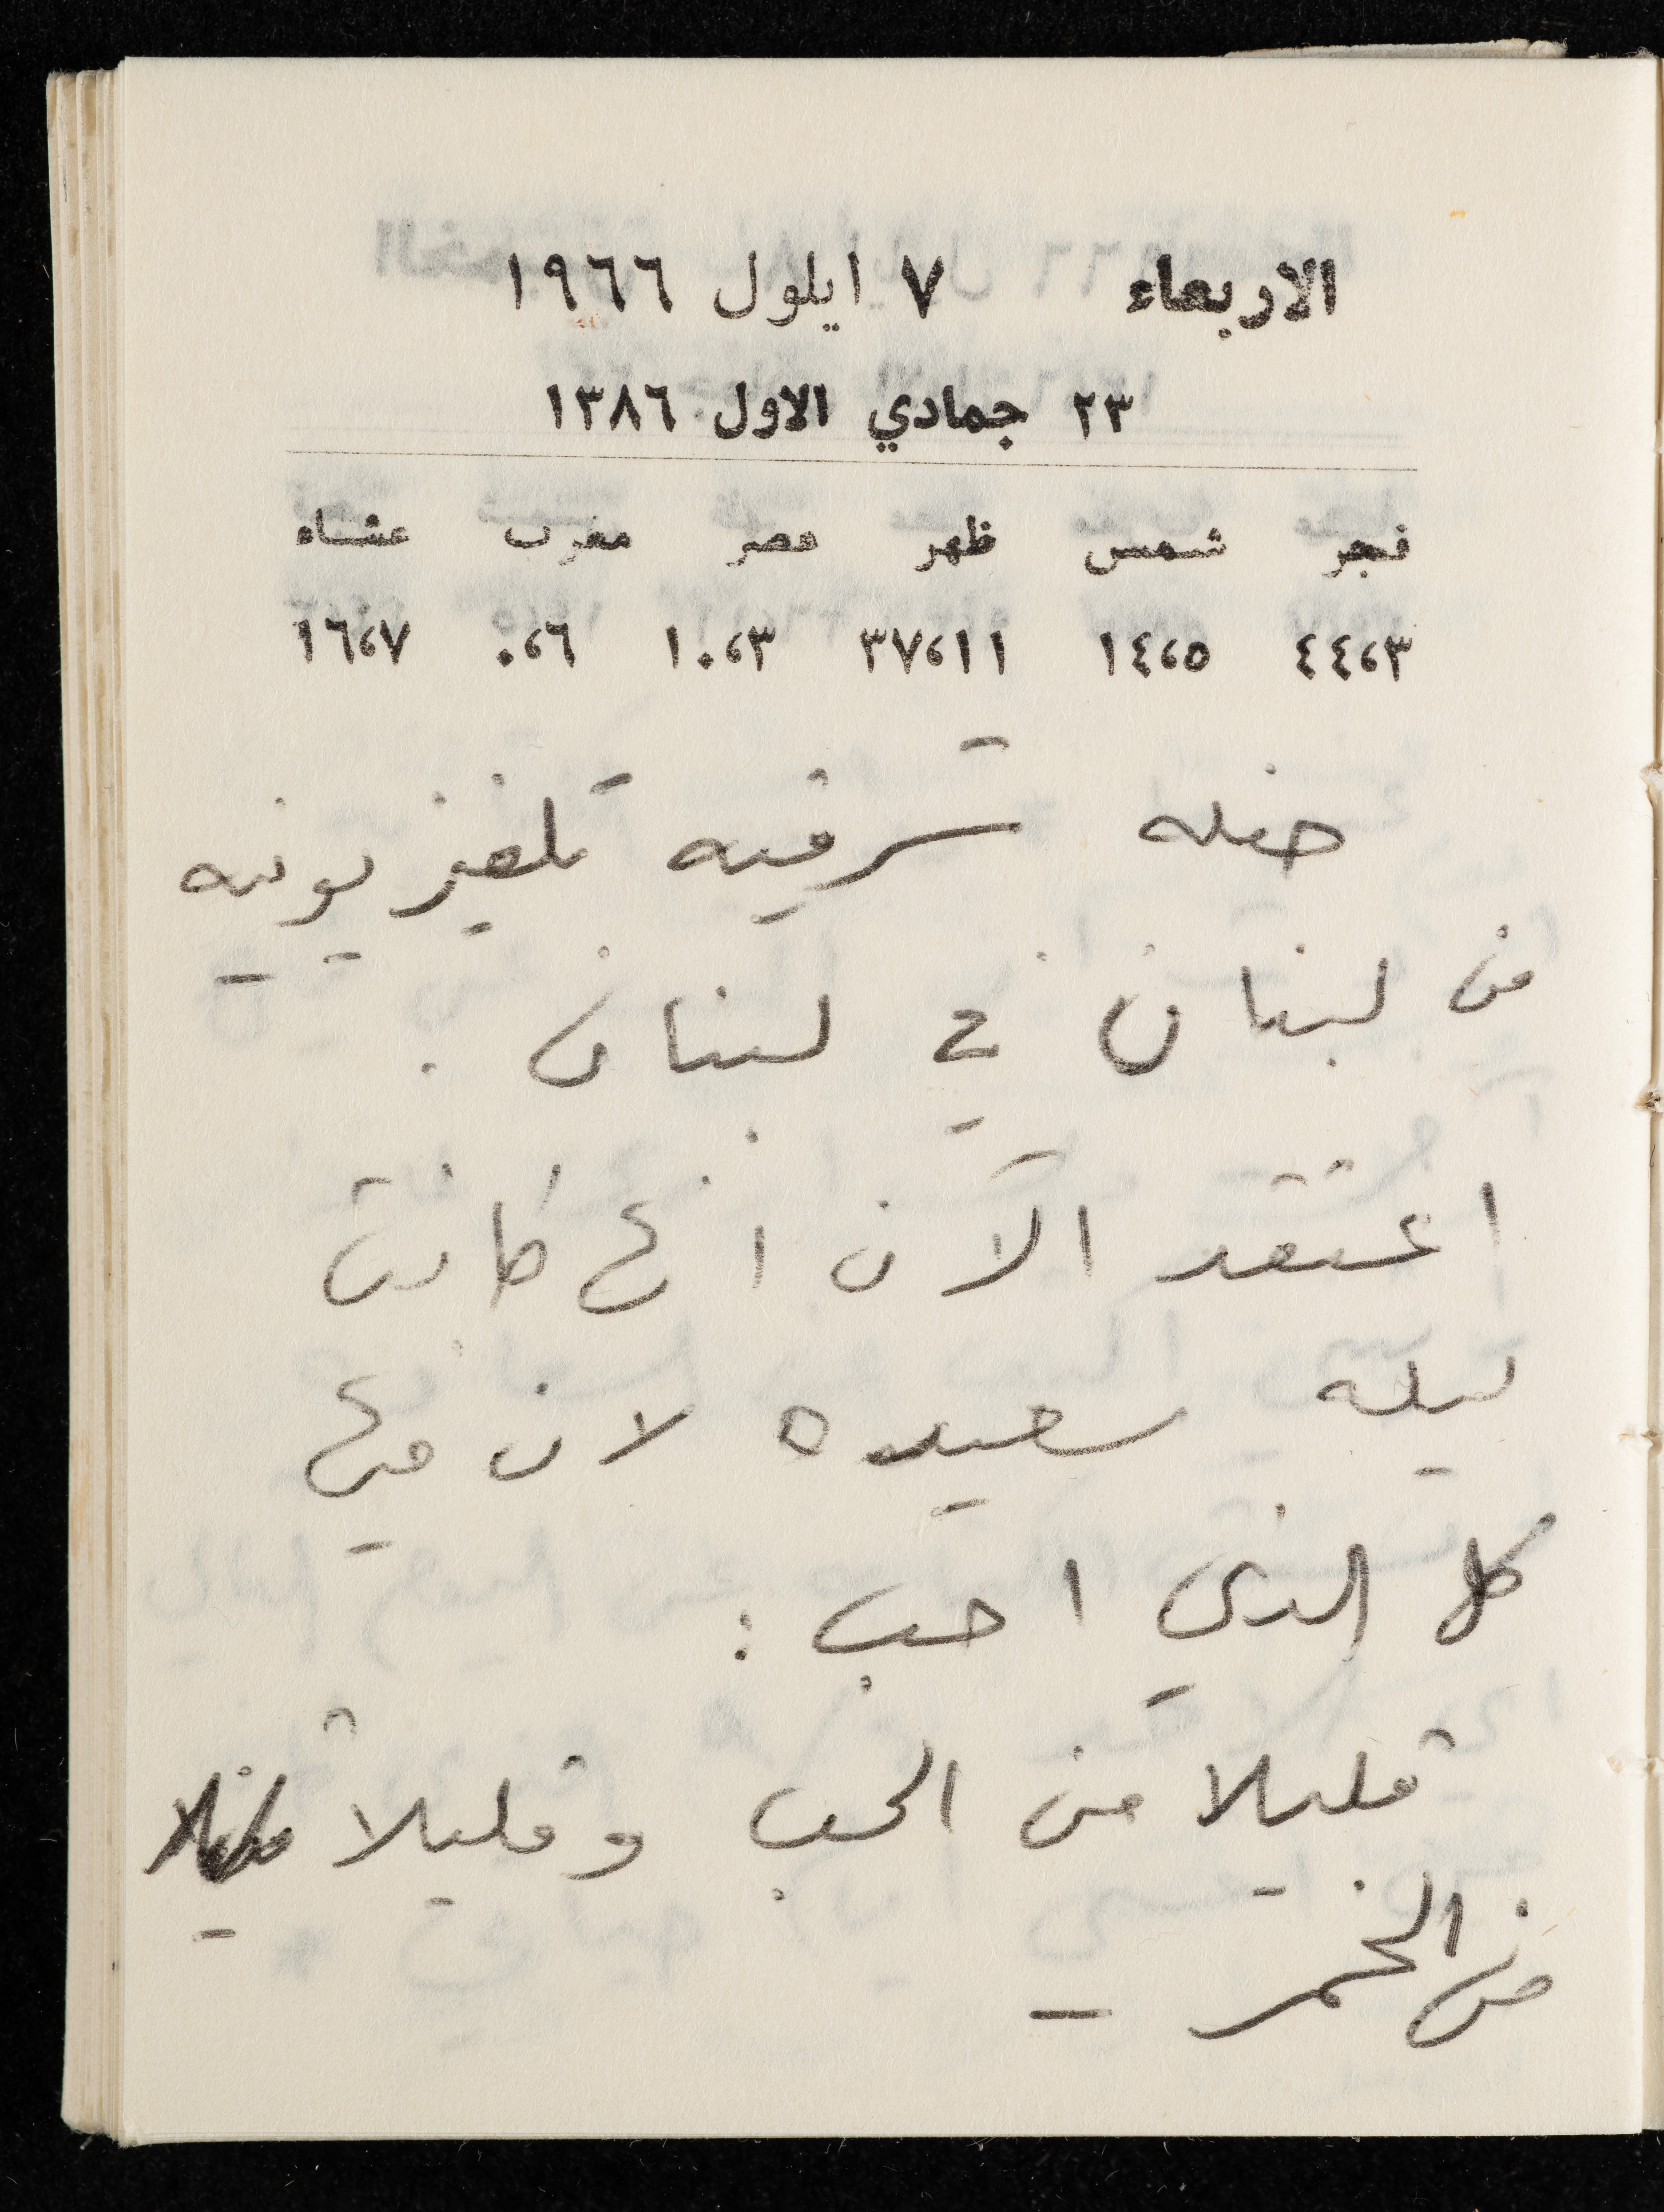 الاربعاء ٧ ايلول ١٩٦٦
٢٣ جمادي الاول ١٣٨٦
فجر شمس ظهر عصر مغرب عشاء
٤٤،٣ ١٤،٥ ٣٧،١١ ١٠،٣ ٠،٦ ١٦،٧
حفله شرقيه تلفزيونيه
من لبنان في لبنان .
اعتقد الآن انها كانت
ليله سعيده لان فيها
كل الذي احب :
قليلا من الحب وقليلا
من الخمر –